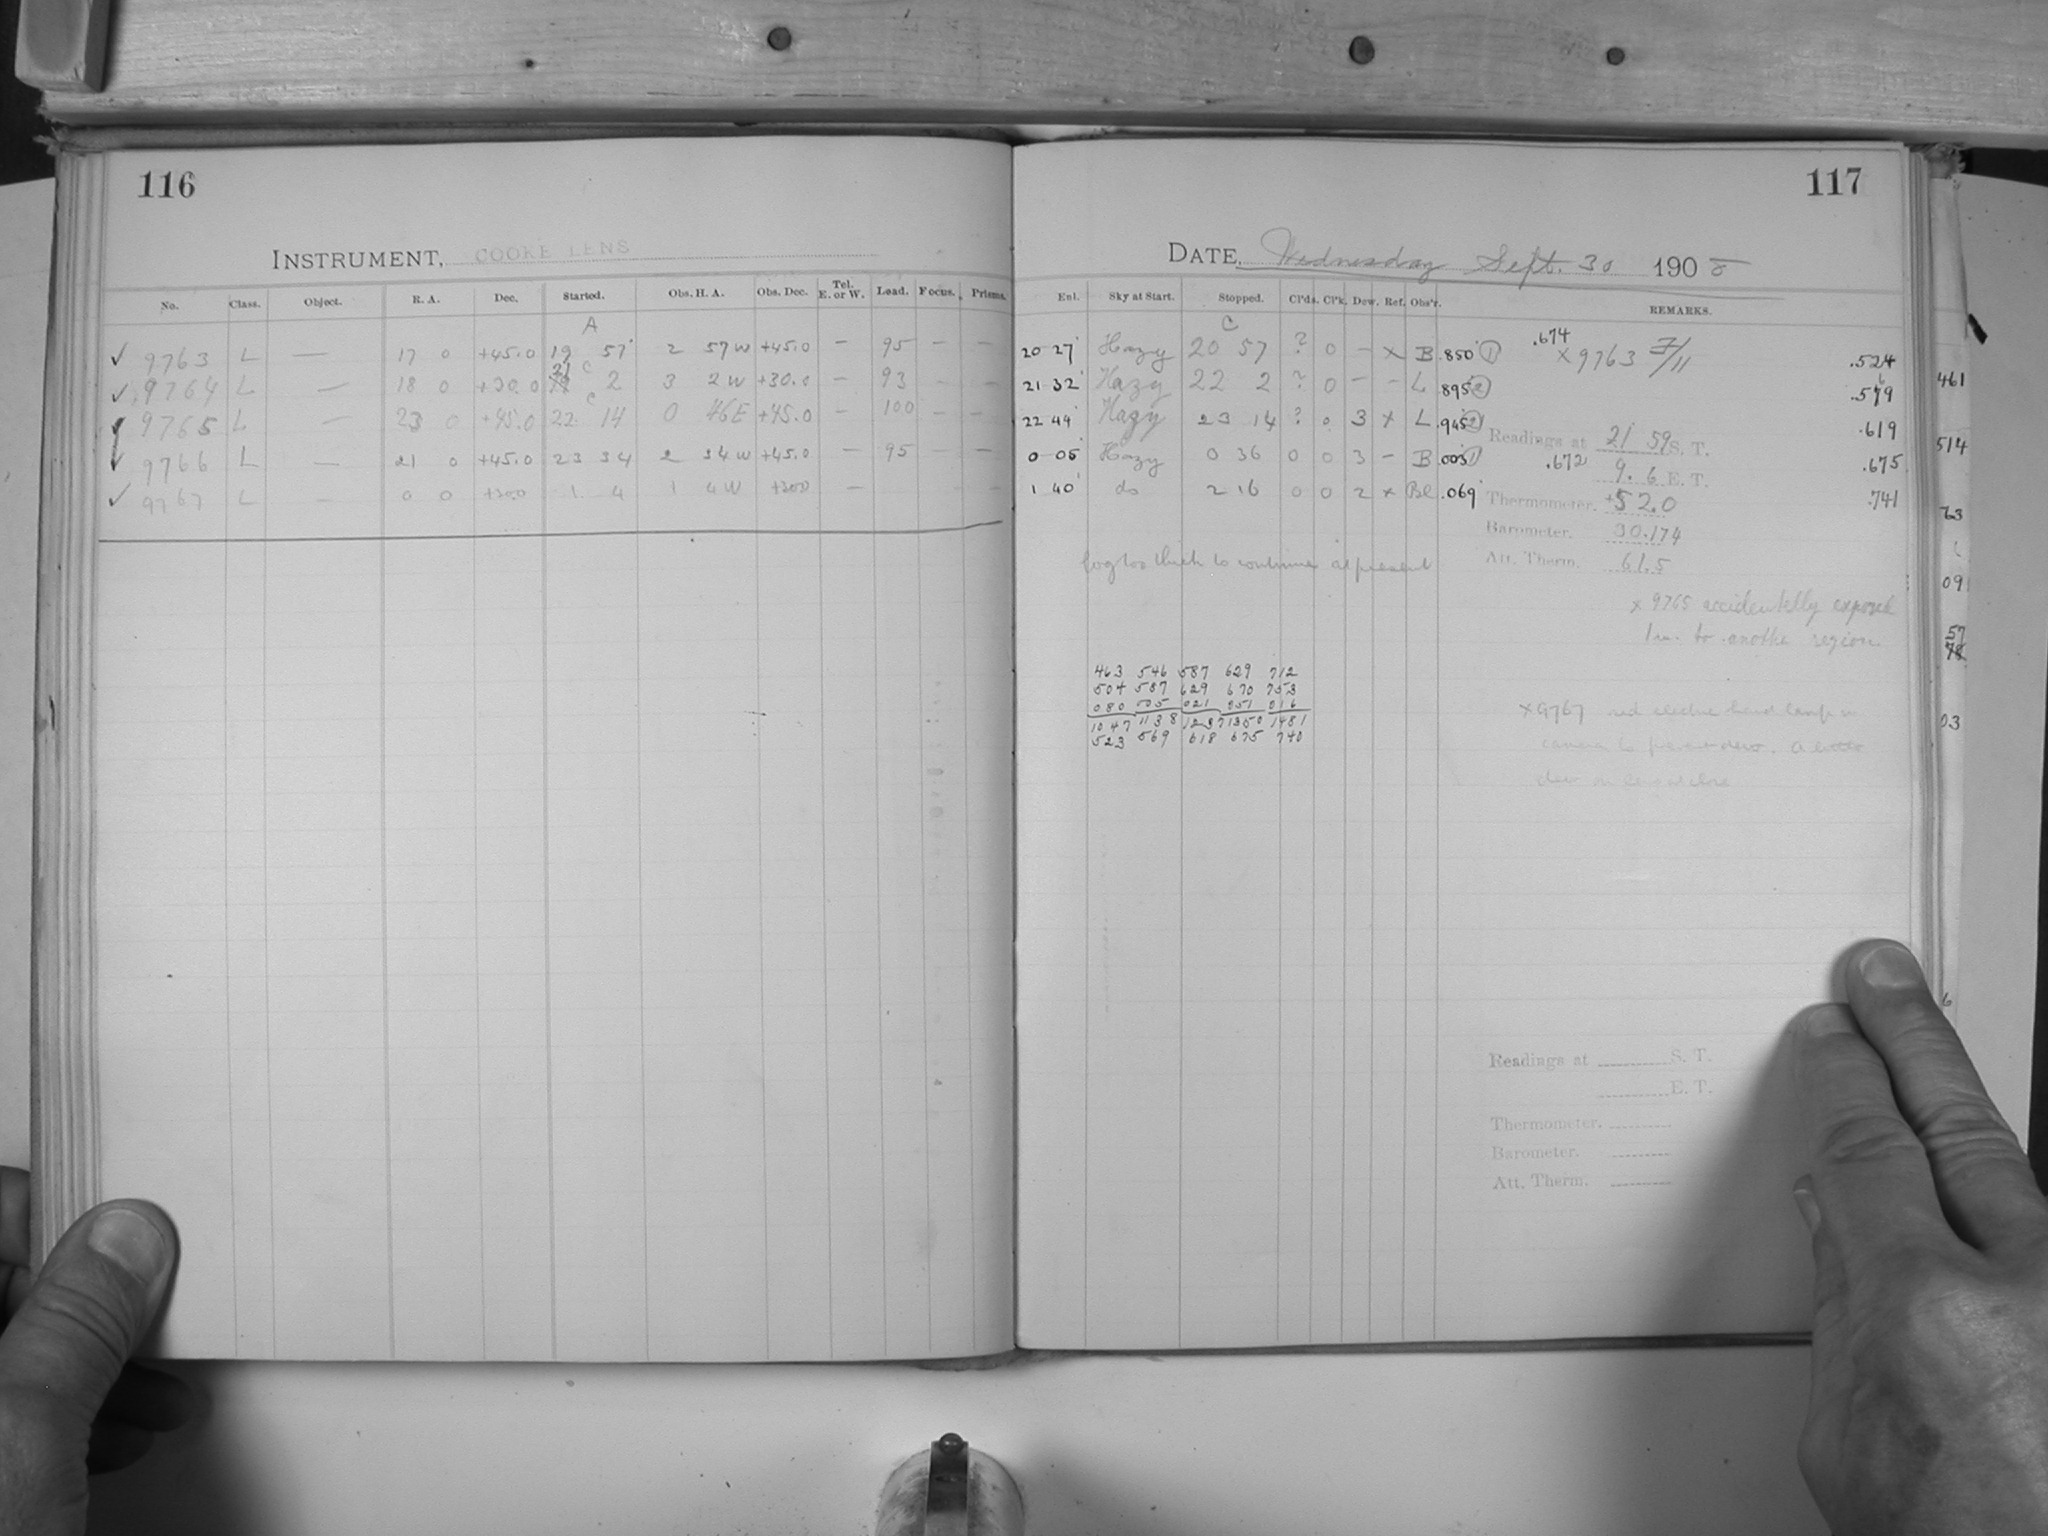 116
117
INSTRUMENT, COOKE LENS
DATE, Wednesday Sept. 30 1908
No. Class. Object. R. A. Dec. Started. Obs. H. A. Obs. Dec. Tel. E. or W. Load. Focus. Prisms.
Exl. Sky at Start. Stopped. Cl'ds. Cl'k. Dew. Ref. Obs'r. REMARKS.
A
C
✓ 9763 L — 17 0 +45.0 19 57 2 57 W +45.0 — 95 — —
20 27 Hazy 20 57 ? 0 — x B .850 1 .674 x 9763 .524
✓ 9764 L — 18 0 +30.0 21 C 2 3 2 W +30.0 — 93 — —
21 32 Hazy 22 2 ? 0 — — L .895 2 .579
✓ 9765 L — 23 0 +45.0 22 C 14 0 46 E +45.0 — 100 — —
22 44 Hazy 23 14 ? 0 3 x L .945 2 .619
✓ 9766 L — 21 0 +45.0 23 34 2 34 W +45.0 — 95 — —
0 05 Hazy 0 36 0 0 3 — B .003 1 .672 .675
✓ 9767 L — 0 0 +30.0 1 4 1 4 W +30.0 — — —
1 40 do 2 16 0 0 2 x Bl .069 .741
Readings at 21 59 S. T.
9. 6 E. T.
Thermometer. +52.0
Barometer. 30.174
Att. Therm. 61.5
fog too thick to continue at present
x 9765 accidentally exposed
1m. to another region
463 546 587 629 712
504 587 629 670 753
080 005 021 051 016
1047 1138 1237 1350 1481
523 569 618 675 740
x 9767 red electric hand lamp in
camera to prevent dew. A little
dew on lens at close
Readings at S. T.
E. T.
Thermometer.
Barometer.
Att. Therm.
461
514
63
091
57
78
03
6